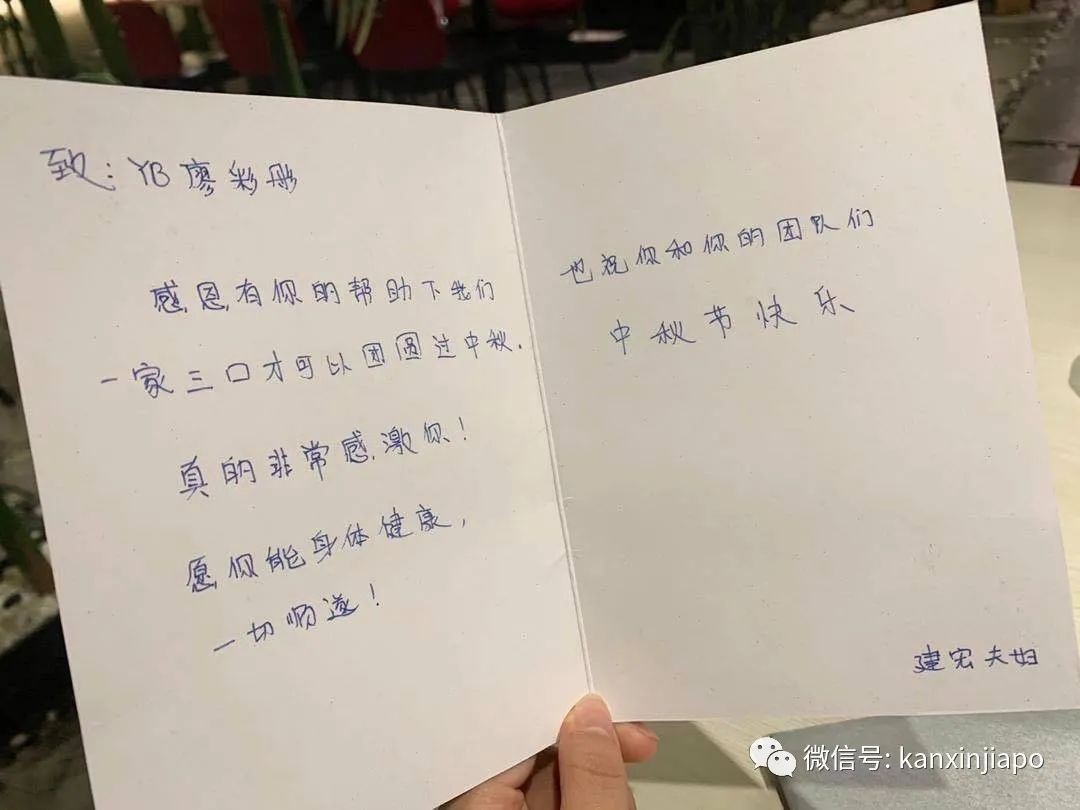 致：YB廖彩彤
感恩有你的帮助下我们
一家三口才可以团圆过中秋.
真的非常感激你！
愿你能身体健康，
一切顺遂！
也祝你和你的团队们
中秋节快乐
建宏夫妇
微信号: kanxinjiapo